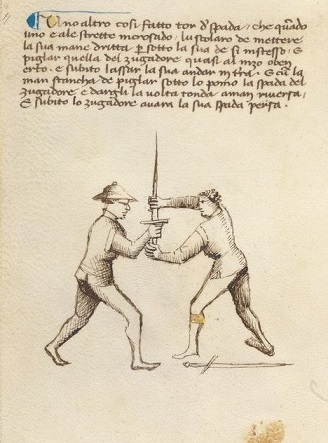 Uno altro cosi fatto tor d' spada / che quãdo
uno e ale strette incrosado / lu scolaro de mettere
la sua mane dritta p̱ sotto la sua de si instesso / E
piglar quella del zugadore quasi al mezo oben
erto. e subito lassar la sua andar in tra. E cũ la
man stancha de piglar sotto lo pomo la spada del
zugadore e dargli la volta tonda a man riversa.
E subito lo zugadore avara la sua spada persa.